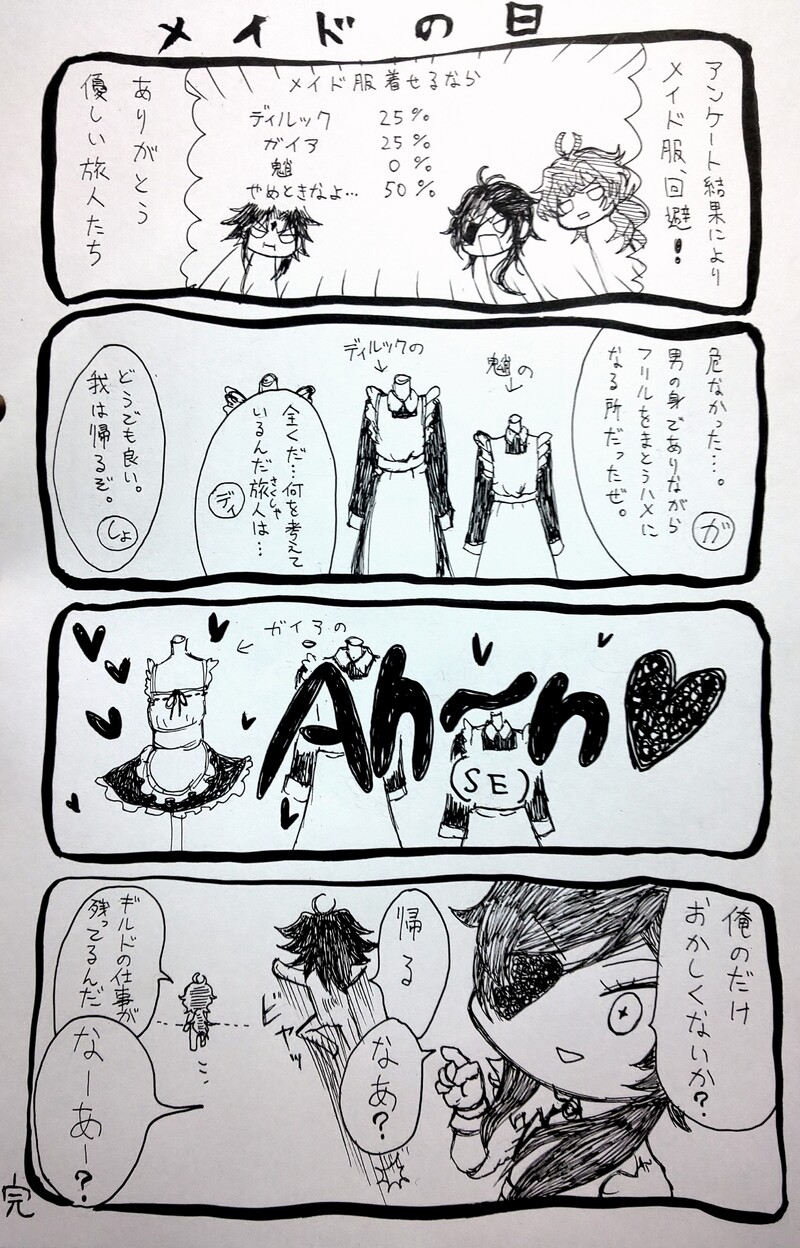 メイドの日
アンケート結果により
メイド服、回避!
メイド服着せるなら
ディルック 25%
ガイア 25%
魈 0%
やめときなよ… 50%
ありがとう
優しい旅人たち
危なかった…。
男の身でありながら
フリルをまとうハメに
なる所だったぜ。
ガ
魈の
ディルックの
全くだ…何を考えて
いるんだ旅人は…
さくしゃ
ディ
どうでも良い。
我は帰るぞ。
しょ
ガイアの
Ah~n
(SE)
俺のだけ
おかしくないか?
なあ?
帰る
ビャッ
ギルドの仕事が
残ってるんだ
なーあー?
完